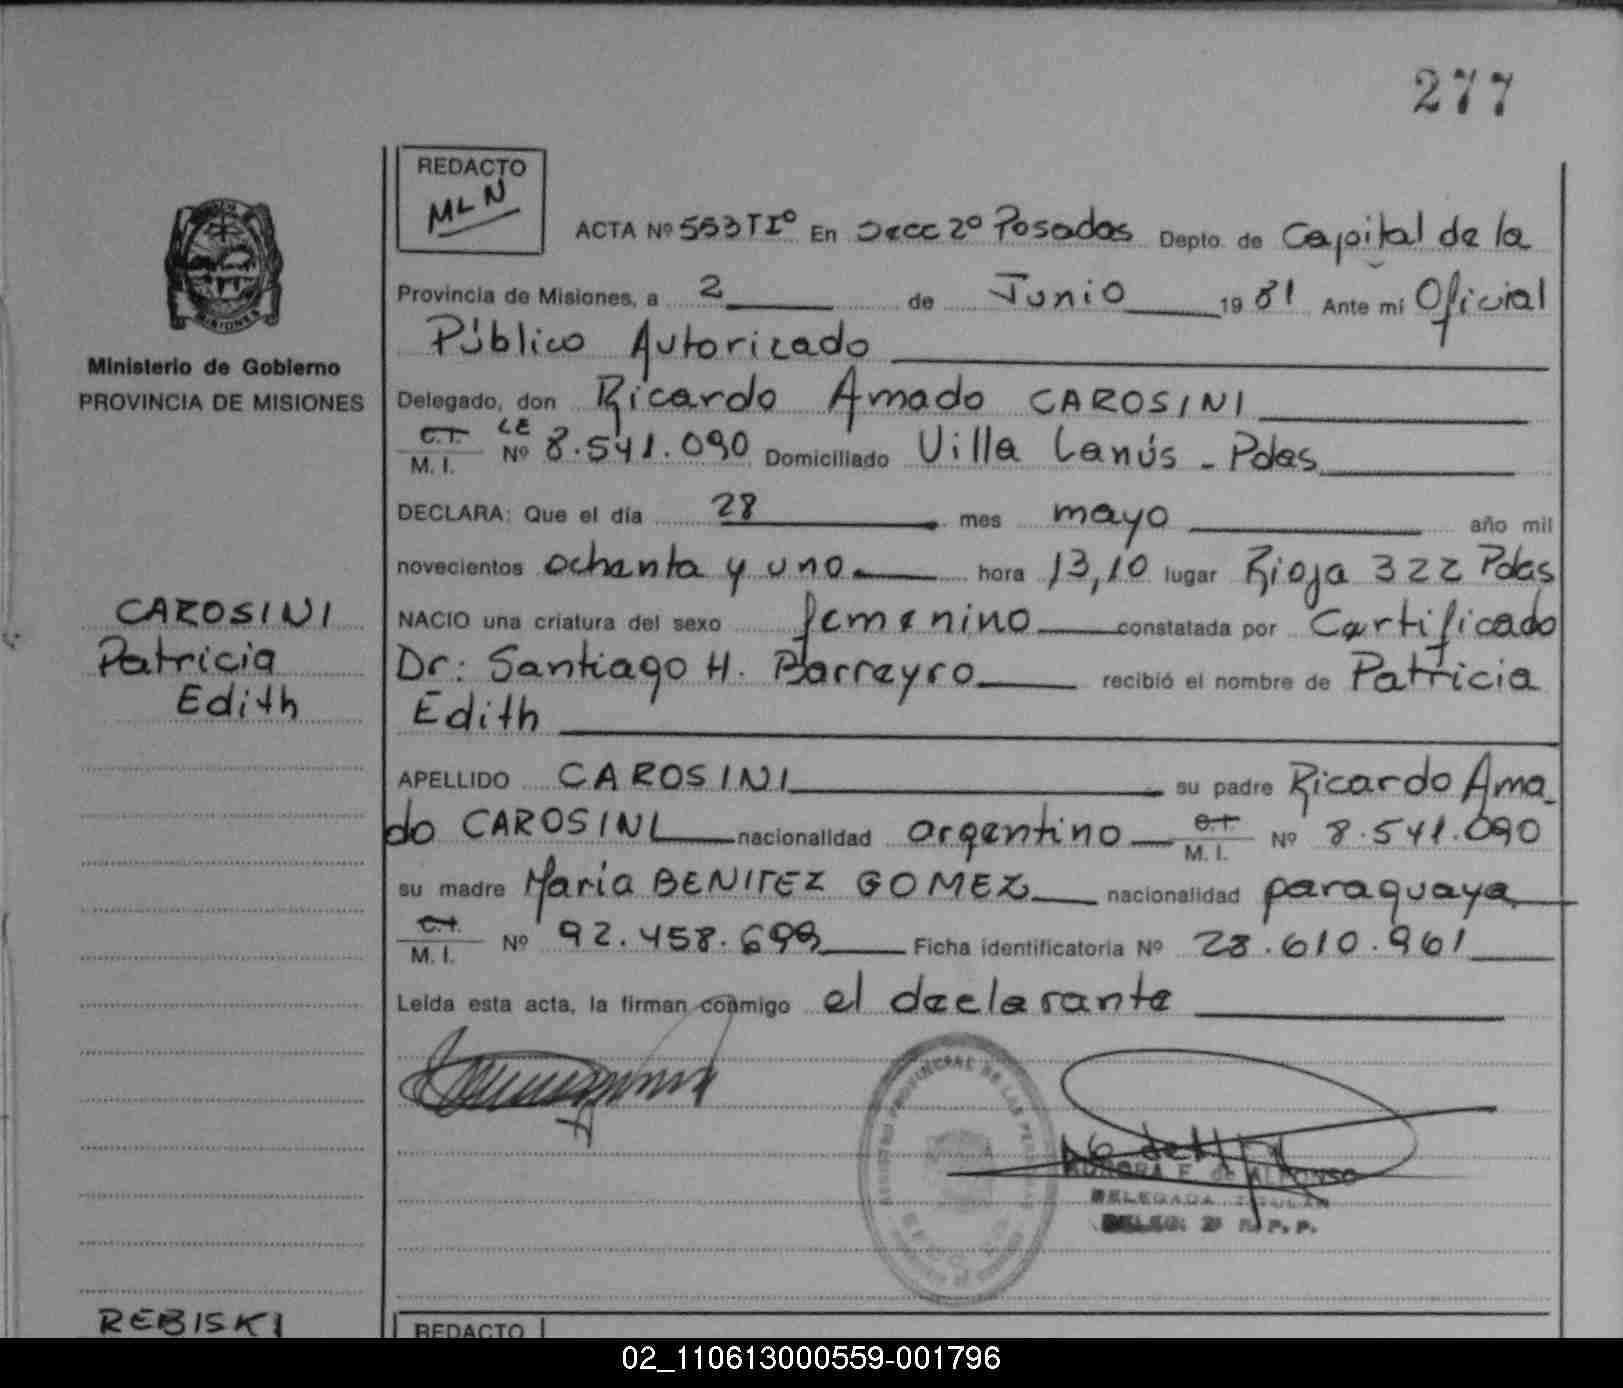 277
REDACTO
MLN
ACTA Nº 553 TIº En Secc 2º Posadas Depto. de Capital de la
Provincia de Misiones, a 2 de Junio 19 81 Ante mi Oficial
Público Autorizado
MISIONES
Ministerio de Gobierno
PROVINCIA DE MISIONES
Delegado, don Ricardo Amado CAROSINI
C.I. LE
M. I. Nº 8.541.090 Domiciliado Villa Lanús - Pdas
DECLARA: Que el día 28 mes mayo año mil
novecientos ochenta y uno hora 13,10 lugar Rioja 322 Pdas
CAROSINI
Patricia
Edith
NACIO una criatura del sexo femenino constatada por Certificado
Dr: Santiago H. Barreyro recibió el nombre de Patricia
Edith
APELLIDO CAROSINI su padre Ricardo Ama-
do CAROSINI nacionalidad argentino C.I. M. I. Nº 8.541.090
su madre María BENITEZ GOMEZ nacionalidad paraguaya
C.I.
M. I. Nº 92.458.699 Ficha identificatoria Nº 28.610.961
Leída esta acta, la firman conmigo el declarante
REGISTRO PROVINCIAL DE LAS PERSONAS
AURORA E. de ALFONSO
DELEGADA TITULAR
DELEG. 2ª R.P.P.
REBISKI
REDACTO
02_110613000559-001796